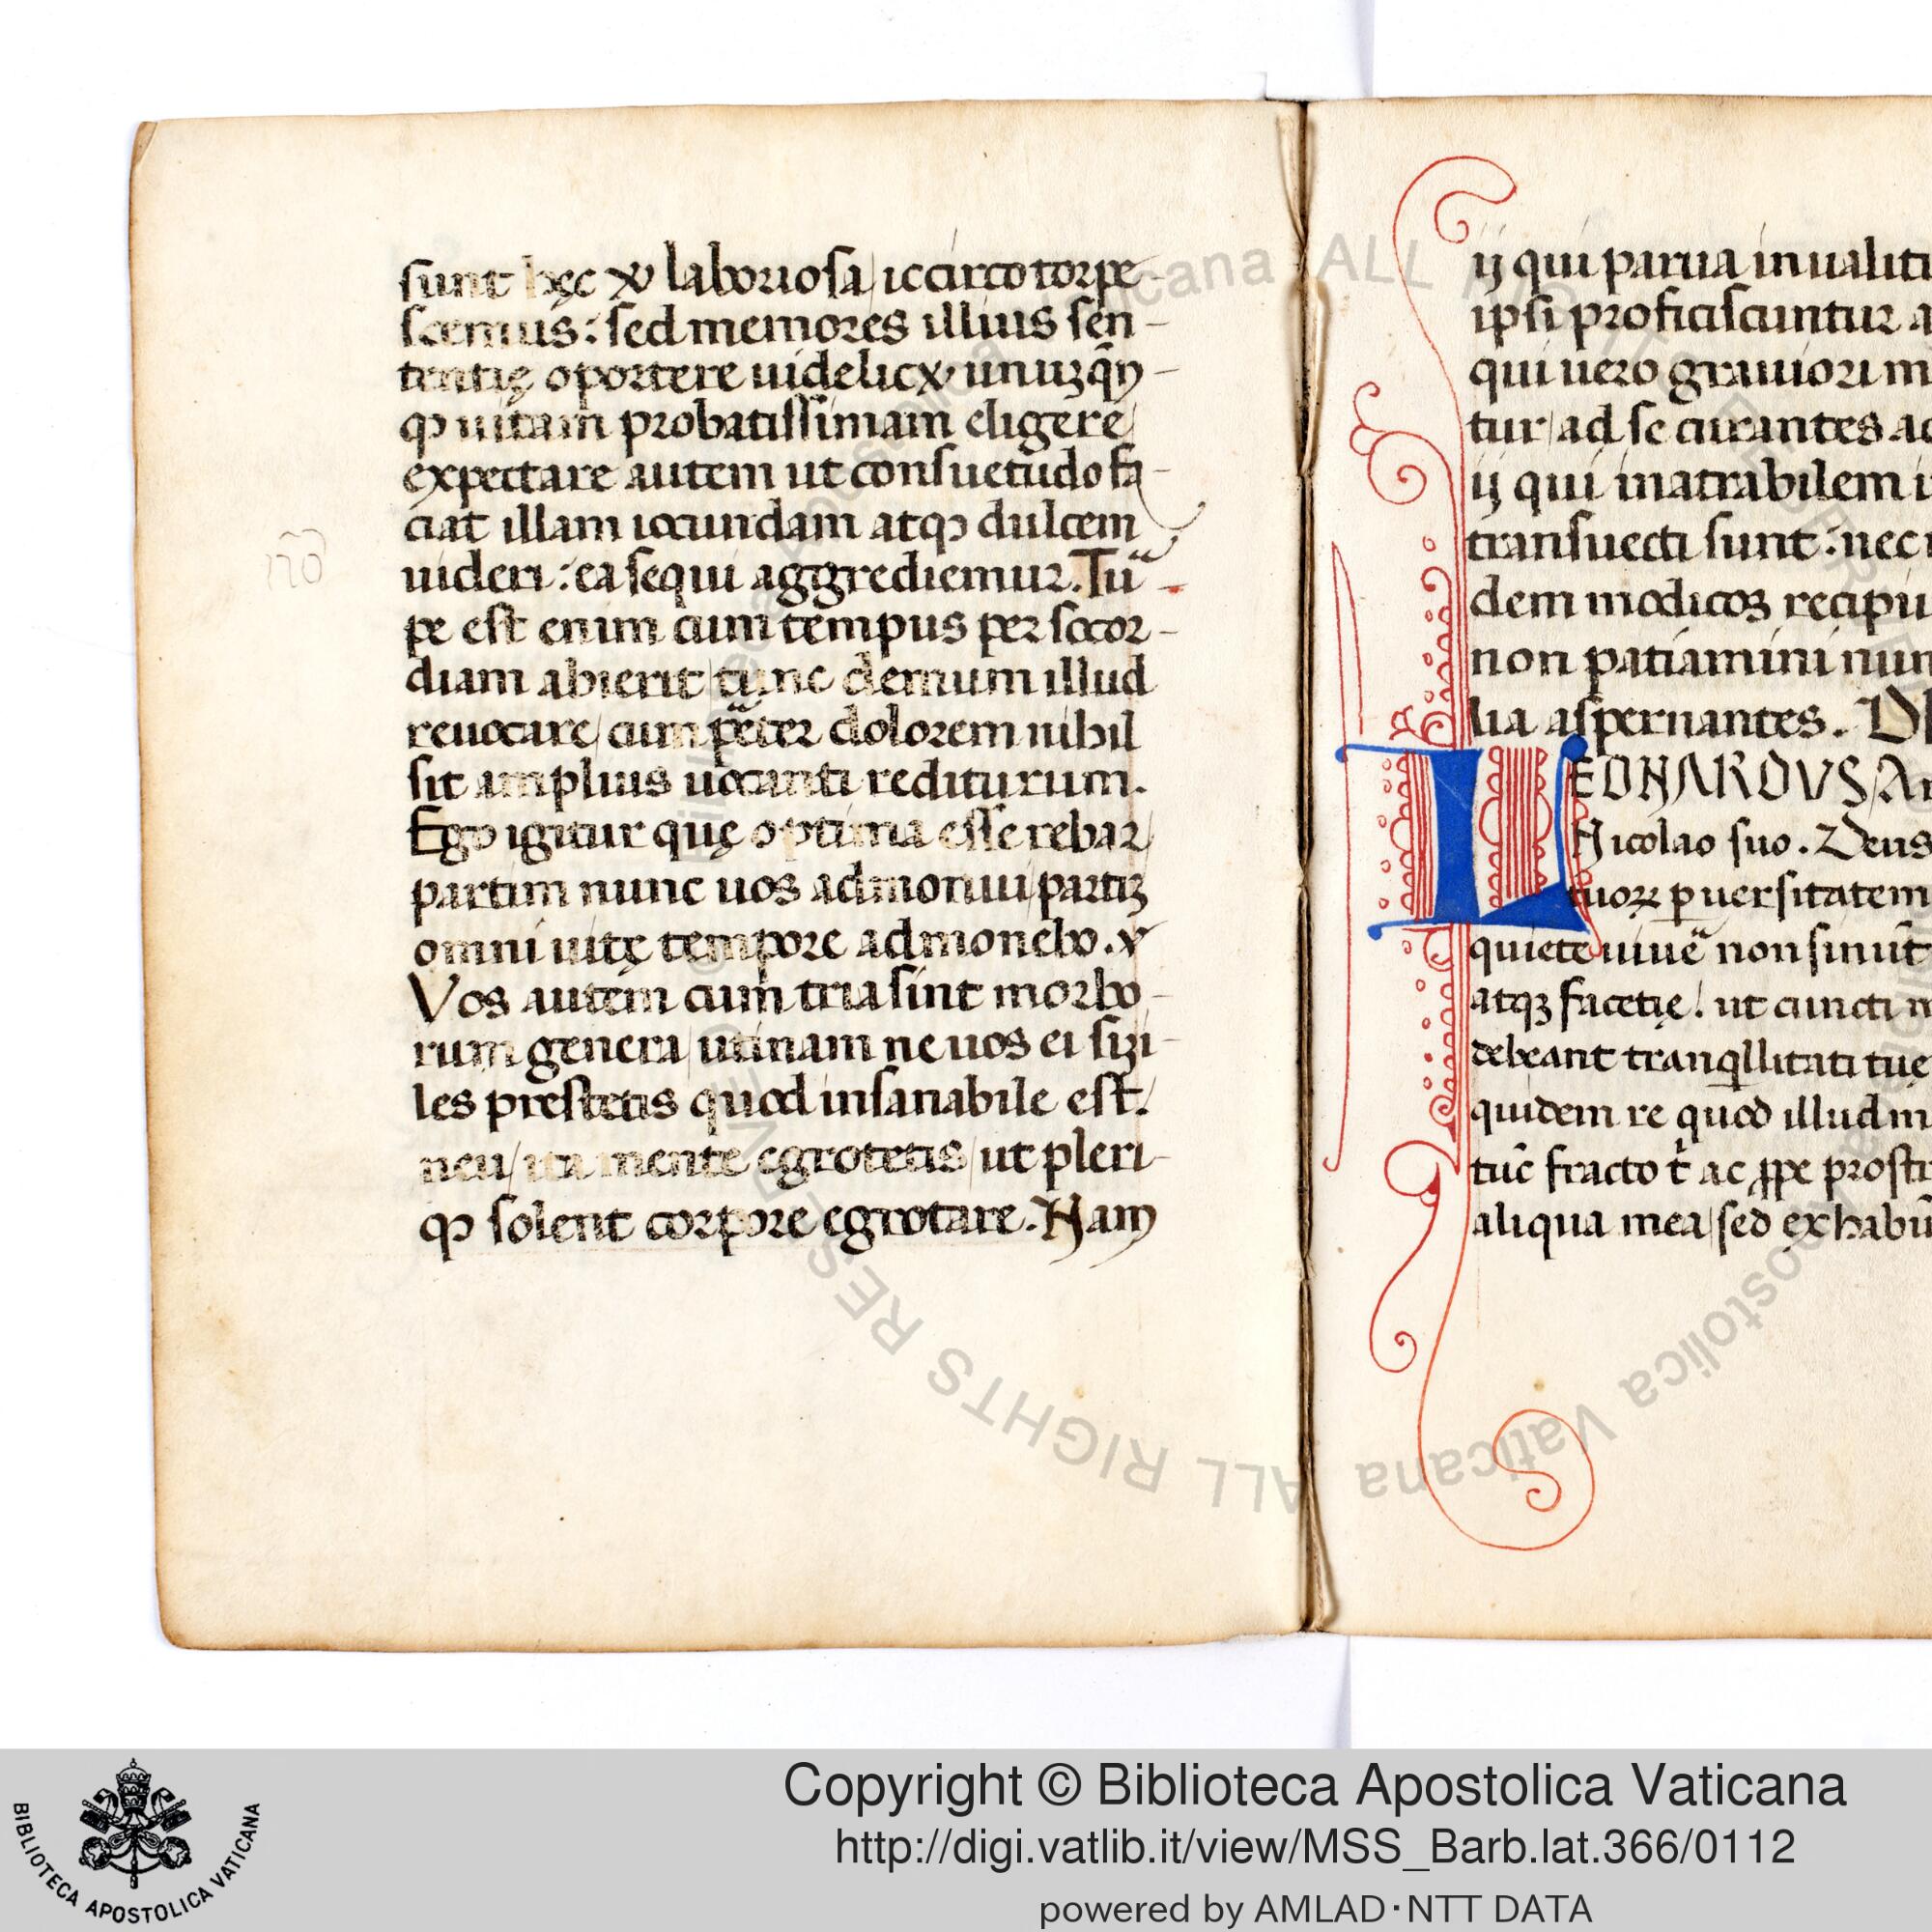 sunt hęc & laboriosa/ iccirco torpe-
scemus: sed memores illius sen-
tentię oportere uidelicet unuzqn-
q3 uitam probatissimam eligere/
expectare autem ut consuetudo fa-
ciat illam iocundam atq3 dulcem
uideri: ea sequi aggrediemur. Tu-
pe est enim cum tempus per socor-
diam abierit/ tunc demum illud
reuocare/ cum pẽter dolorem nihil
sit amplius uocanti rediturum.
Ego igitur quę optima esse rebar/
partim nunc uos admonui/ partiz
omni uitę tempore admonebo.
Vos autem cum tria sint morbo-
rum genera/ utinam ne uos ei sizi-
les prestetis quod insanabile est/.
neu/ ita mente egrotetis/ ut pleri-
q3 solent corpore egrotare. Nam
no
ij qui parua inualiti
ipsi proficiscuntur a
qui uero grauiori m
tur/ ad se curantes ac
ij qui inatrabilem i
transuecti sunt: nec
dem modicoz recipiu
non patiamini nun
lia aspernantes. D
LEONARDVS/ Ar
Nicolao suo. Deus
tuorz puersitatem
quiete uiue non sinut
atqz facetię! ut cuncti n
debeant tranqllitati tuę
quidem re quod illud m
tuc fracto t ac ppe prostr
aliqua mea/ sed ex habu
Copyright © Biblioteca Apostolica Vaticana
http://digi.vatlib.it/view/MSS_Barb.lat.366/0112
powered by AMLAD·NTT DATA
BIBLIOTECA APOSTOLICA VATICANA